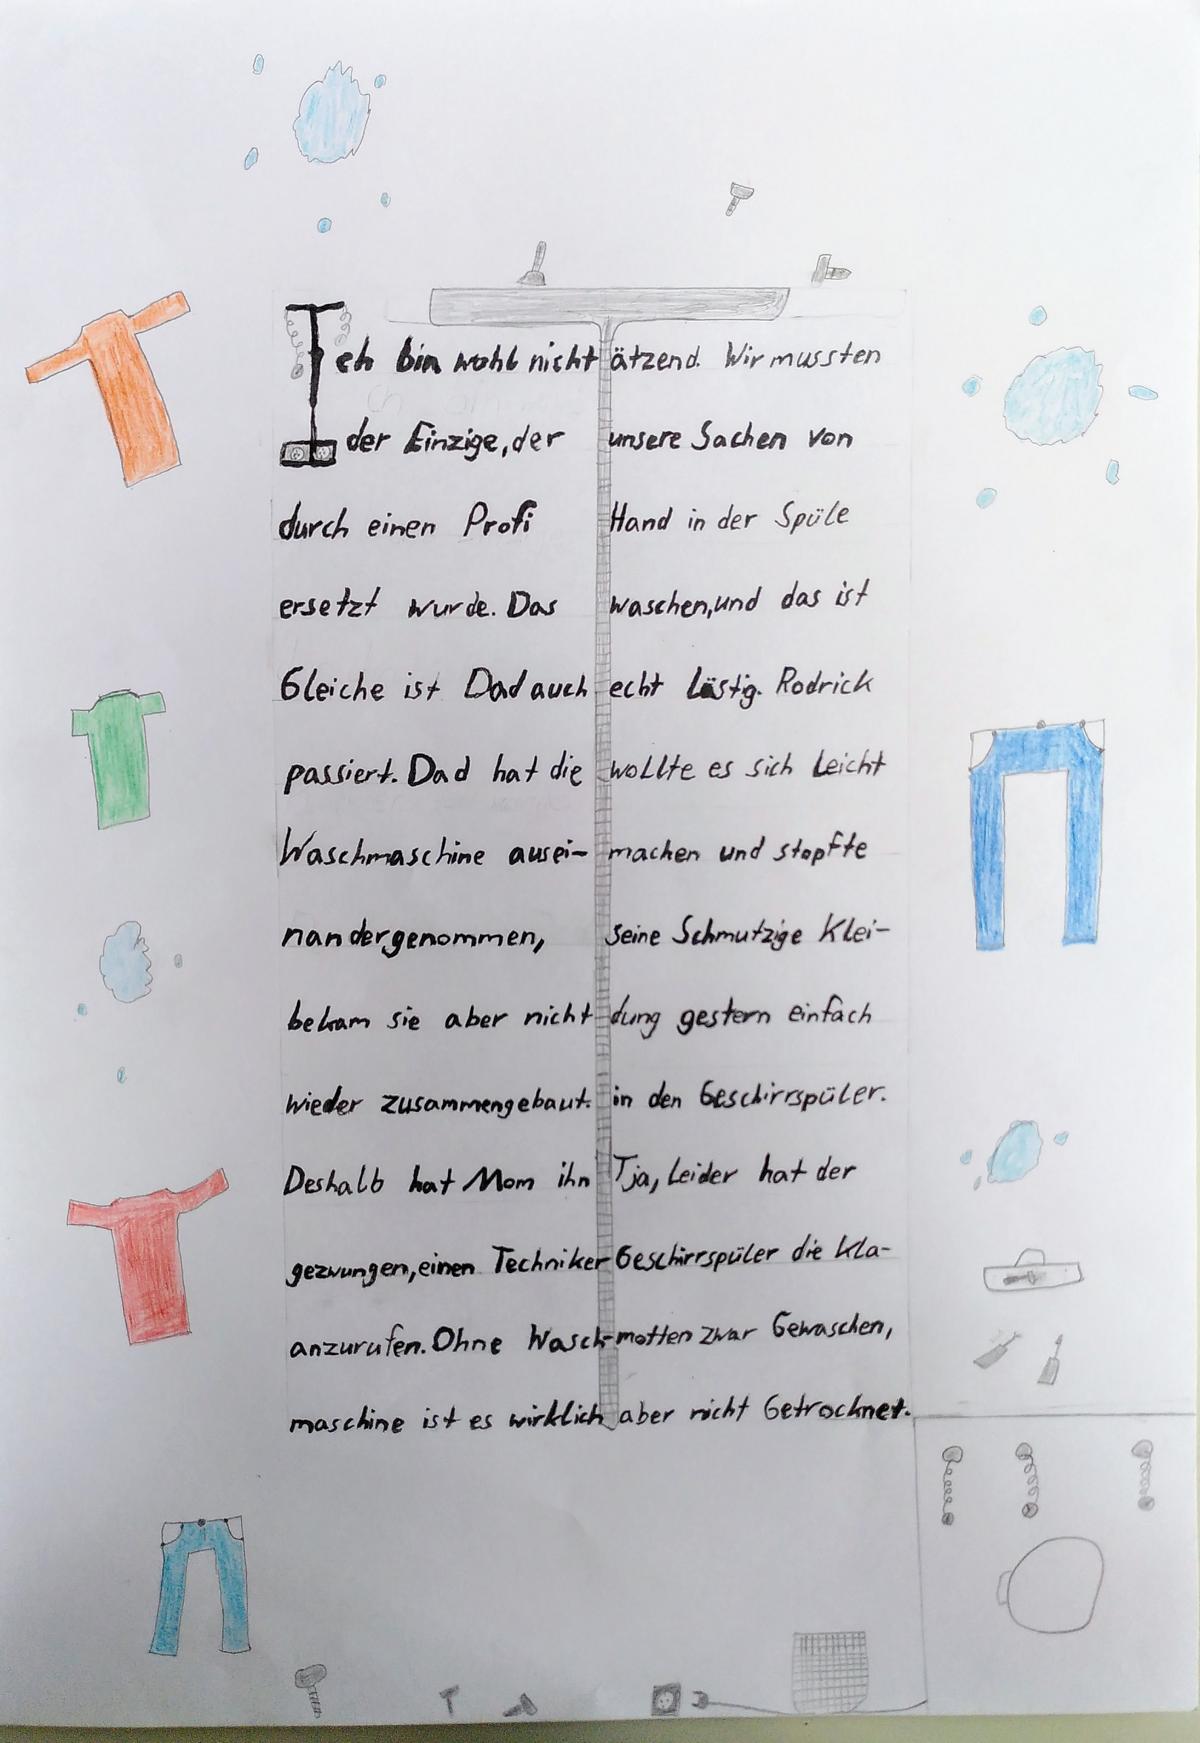 Ich bin wohl nicht
der Einzige, der
durch einen Profi
ersetzt wurde. Das
Gleiche ist Dad auch
passiert. Dad hat die
Waschmaschine ausei-
nandergenommen,
bekam sie aber nicht
wieder zusammengebaut.
Deshalb hat Mom ihn
gezwungen, einen Techniker
anzurufen. Ohne Wasch-
maschine ist es wirklich
ätzend. Wir mussten
unsere Sachen von
Hand in der Spüle
waschen, und das ist
echt lästig. Rodrick
wollte es sich leicht
machen und stopfte
seine Schmutzige Klei-
dung gestern einfach
in den Geschirrspüler.
Tja, leider hat der
Geschirrspüler die Kla-
motten zwar Gewaschen,
aber nicht Getrocknet.